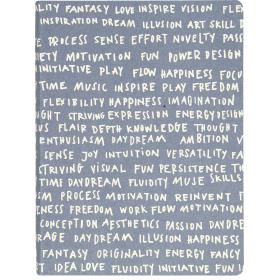 VITY FANTASY LOVE INSPIRE VISION FLEX
INSPIRATION DREAM ILLUSION ART SKILL D
E PROCESS SENSE EFFORT NOVELTY PASS
ETY MOTIVATION FUN POWER DESIGN
INITIATIVE PLAY FLOW HAPPINESS FOCU
TIME MUSIC INSPIRE PLAY FREEDOM
FLEXIBILITY HAPPINESS IMAGINATION
IGHT STRIVING EXPRESSION ENERGY DESIGN
US FLAIR DEPTH KNOWLEDGE THOUGHT
ENTHUSIASM DAYDREAM AMBITION V
SENSE JOY INTUITION VERSATILITY FA
STRIVING VISUAL FUN PERSISTENCE TH
TIME DAYDREAM FLUIDITY MUSE SKILLS
SM PROCESS MOTIVATION REINVENT F
NESS FREEDOM WORK FLOW MOTIVATION
CONCEPTION AESTHETICS PASSION DAYDR
RAGE DAYDREAM ILLUSION HAPPINESS
FANTASY ORIGINALITY ENERGY FANCY
T IDEA LOVE FLUIDITY INITIATIVE FUN